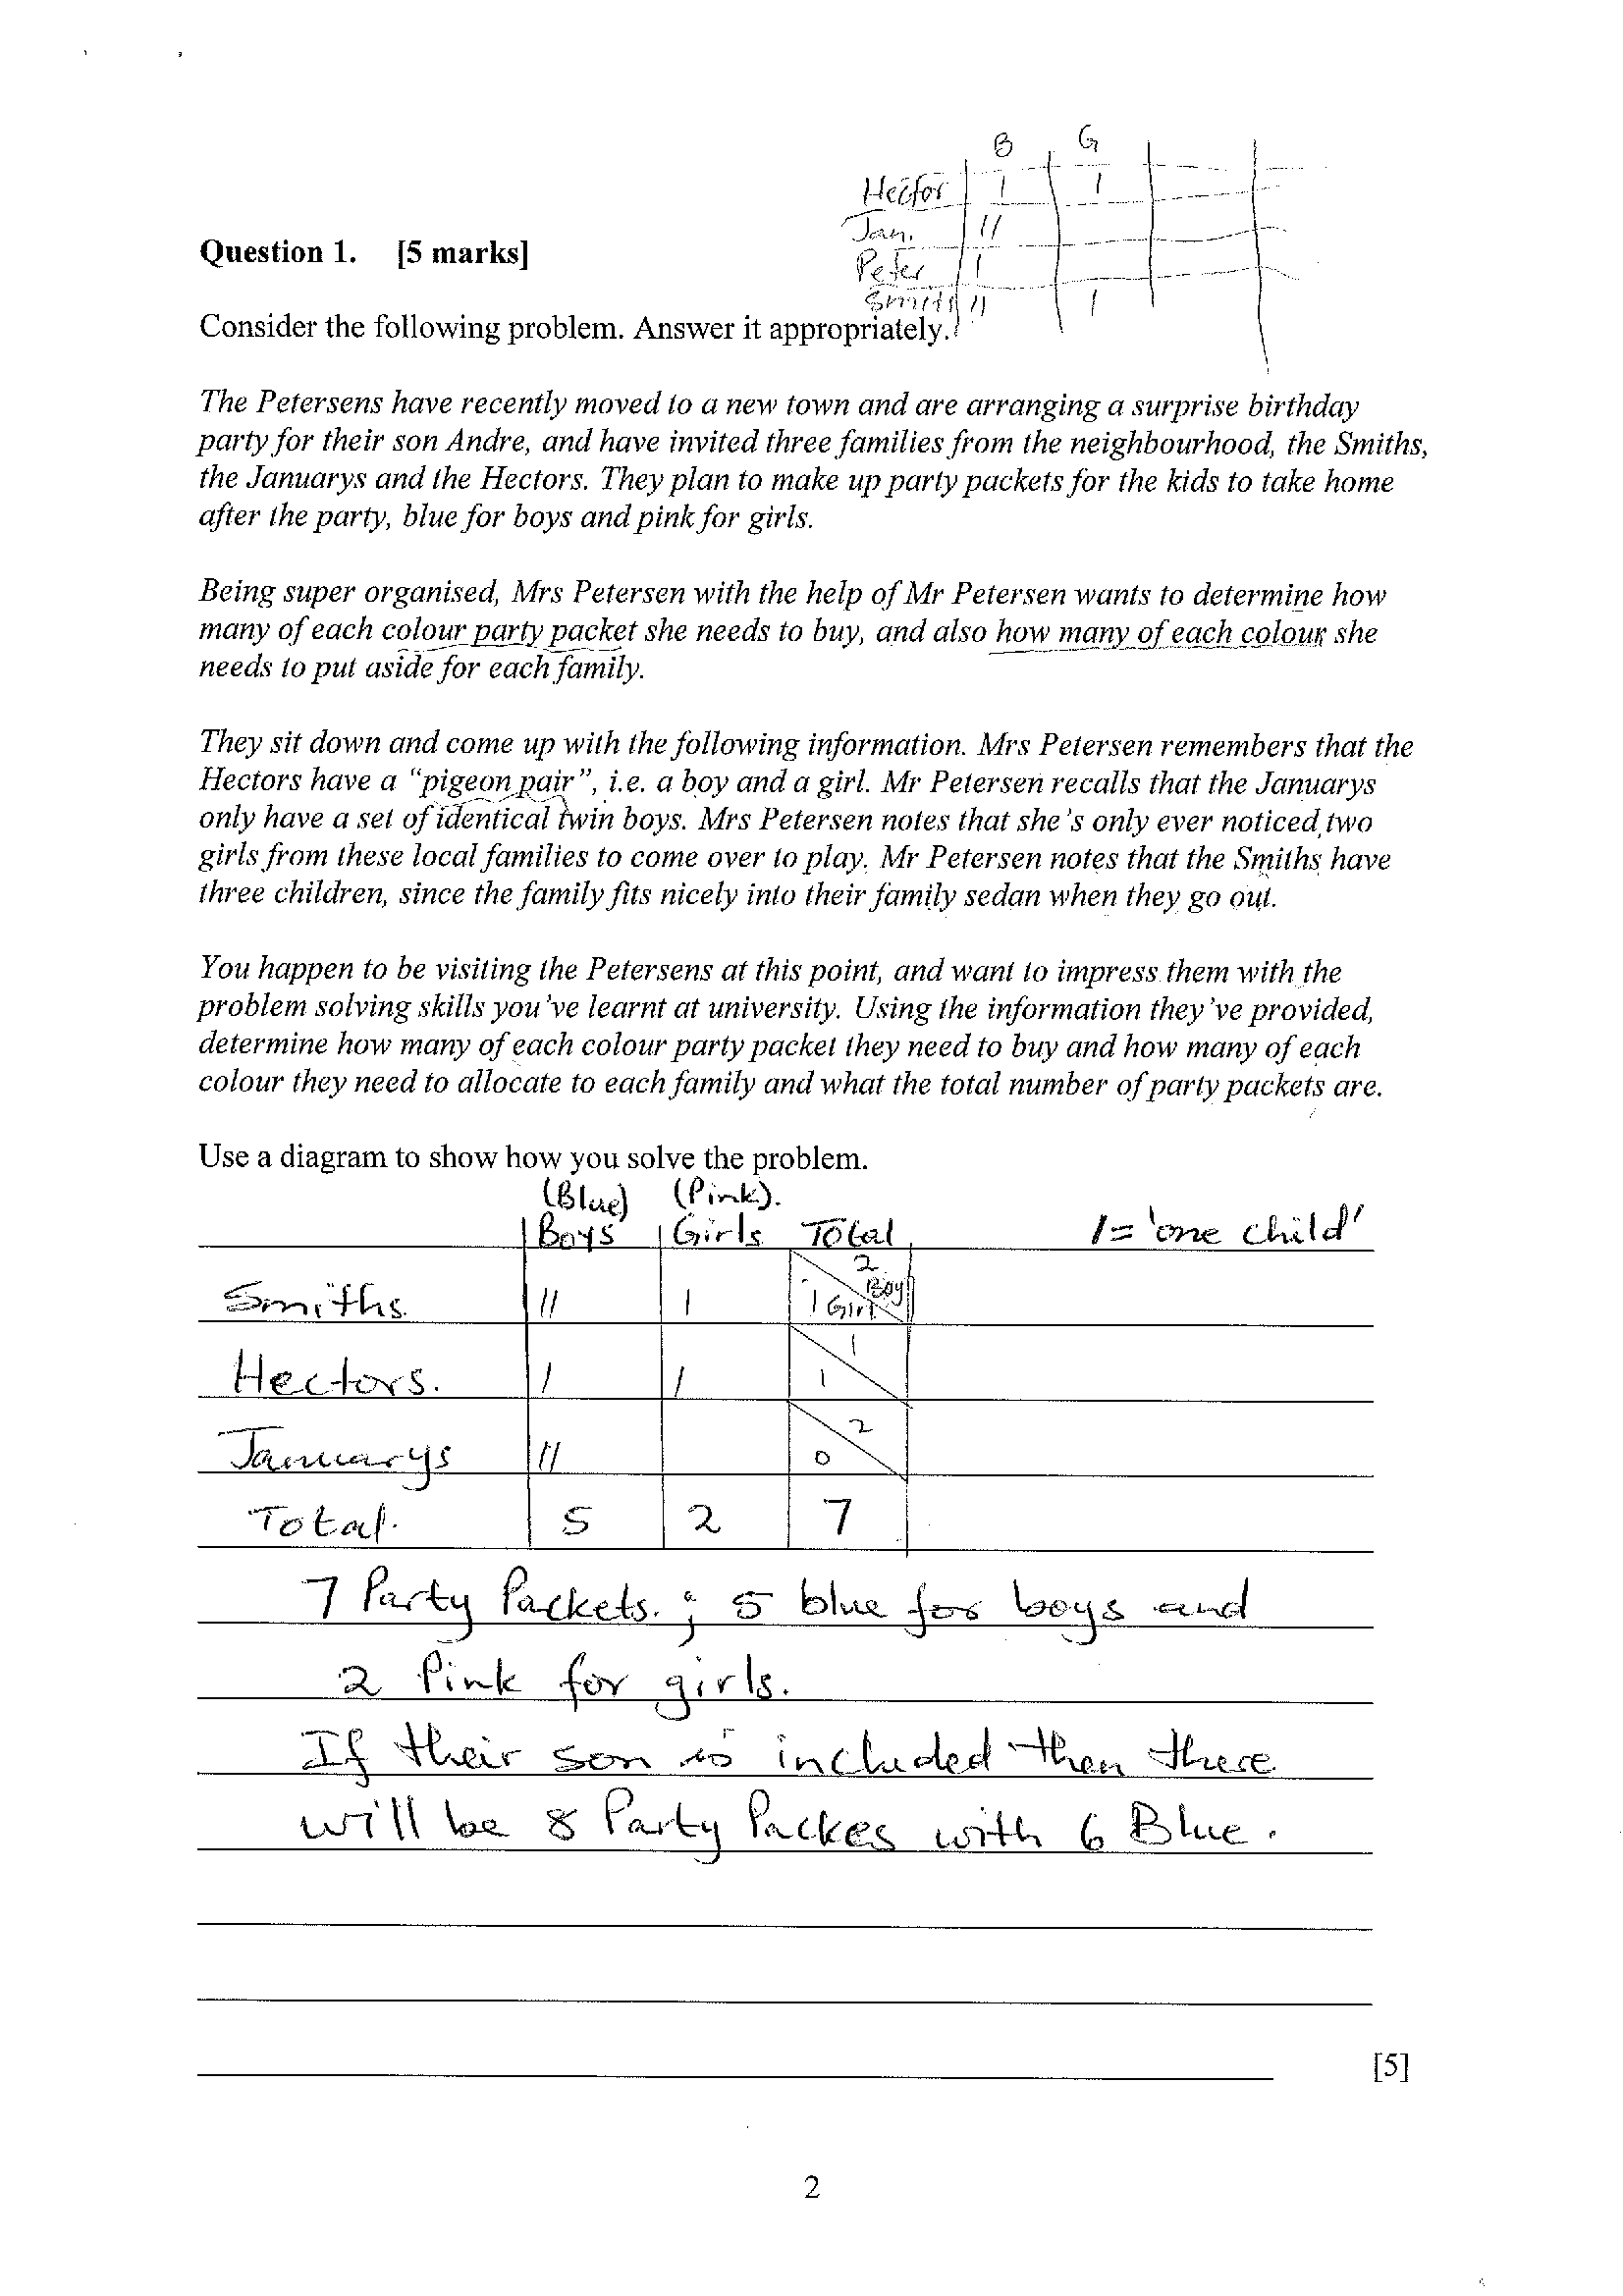 B G
Hector 1 1
Jan. 11
Peter 1
Smith 11 1
Question 1. [5 marks]
Consider the following problem. Answer it appropriately.
The Petersens have recently moved to a new town and are arranging a surprise birthday
party for their son Andre, and have invited three families from the neighbourhood, the Smiths,
the Januarys and the Hectors. They plan to make up party packets for the kids to take home
after the party, blue for boys and pink for girls.
Being super organised, Mrs Petersen with the help of Mr Petersen wants to determine how
many of each colour party packet she needs to buy, and also how many of each colour she
needs to put aside for each family.
They sit down and come up with the following information. Mrs Petersen remembers that the
Hectors have a "pigeon pair", i.e. a boy and a girl. Mr Petersen recalls that the Januarys
only have a set of identical twin boys. Mrs Petersen notes that she's only ever noticed two
girls from these local families to come over to play. Mr Petersen notes that the Smiths have
three children, since the family fits nicely into their family sedan when they go out.
You happen to be visiting the Petersens at this point, and want to impress them with the
problem solving skills you've learnt at university. Using the information they've provided,
determine how many of each colour party packet they need to buy and how many of each
colour they need to allocate to each family and what the total number of party packets are.
Use a diagram to show how you solve the problem.
(Blue) (Pink).
Boys Girls Total 1 = 'one child'
Smiths 11 1 2 Boy 1 Girl
Hectors. 1 1 1 1
Januarys 11 2 0
Total. 5 2 7
7 Party Packets. ; 5 blue for boys and
2 Pink for girls.
If their son is included then there
will be 8 Party Packes with 6 Blue.
[5]
2